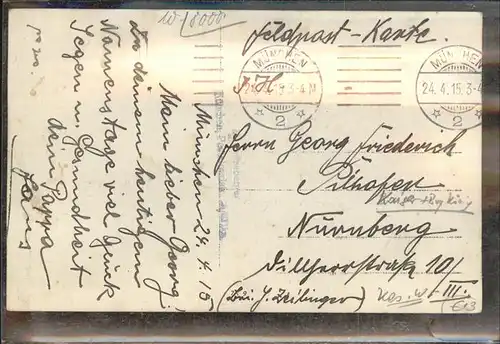 W-18000
Feldpost-Karte.
MÜNCHEN
3-4 N
2
MÜNCHEN
24. 4. 15. 3-4
2
München 24. 4. 15
Mein lieber Georg!
Zu deinem heutigen
Namenstage viel Glück
Segen u. Gesundheit
dein Pappa
Herrn Georg Friederich
Pilhofen
Nürnberg
Dillherrstraße 10/
III.
(bei J. Zeilinger)